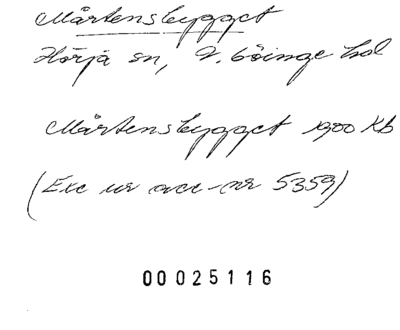 Mårtensbygget
Hörja sn, V. Göinge hd
Mårtensbygget 1900 Kb
(Exc ur acc-nr 5359)
00025116